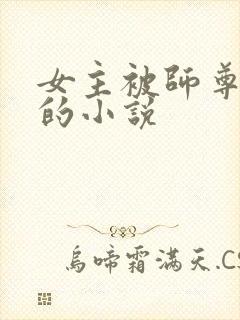 女主被師尊
的小說
烏啼霜滿天.CS